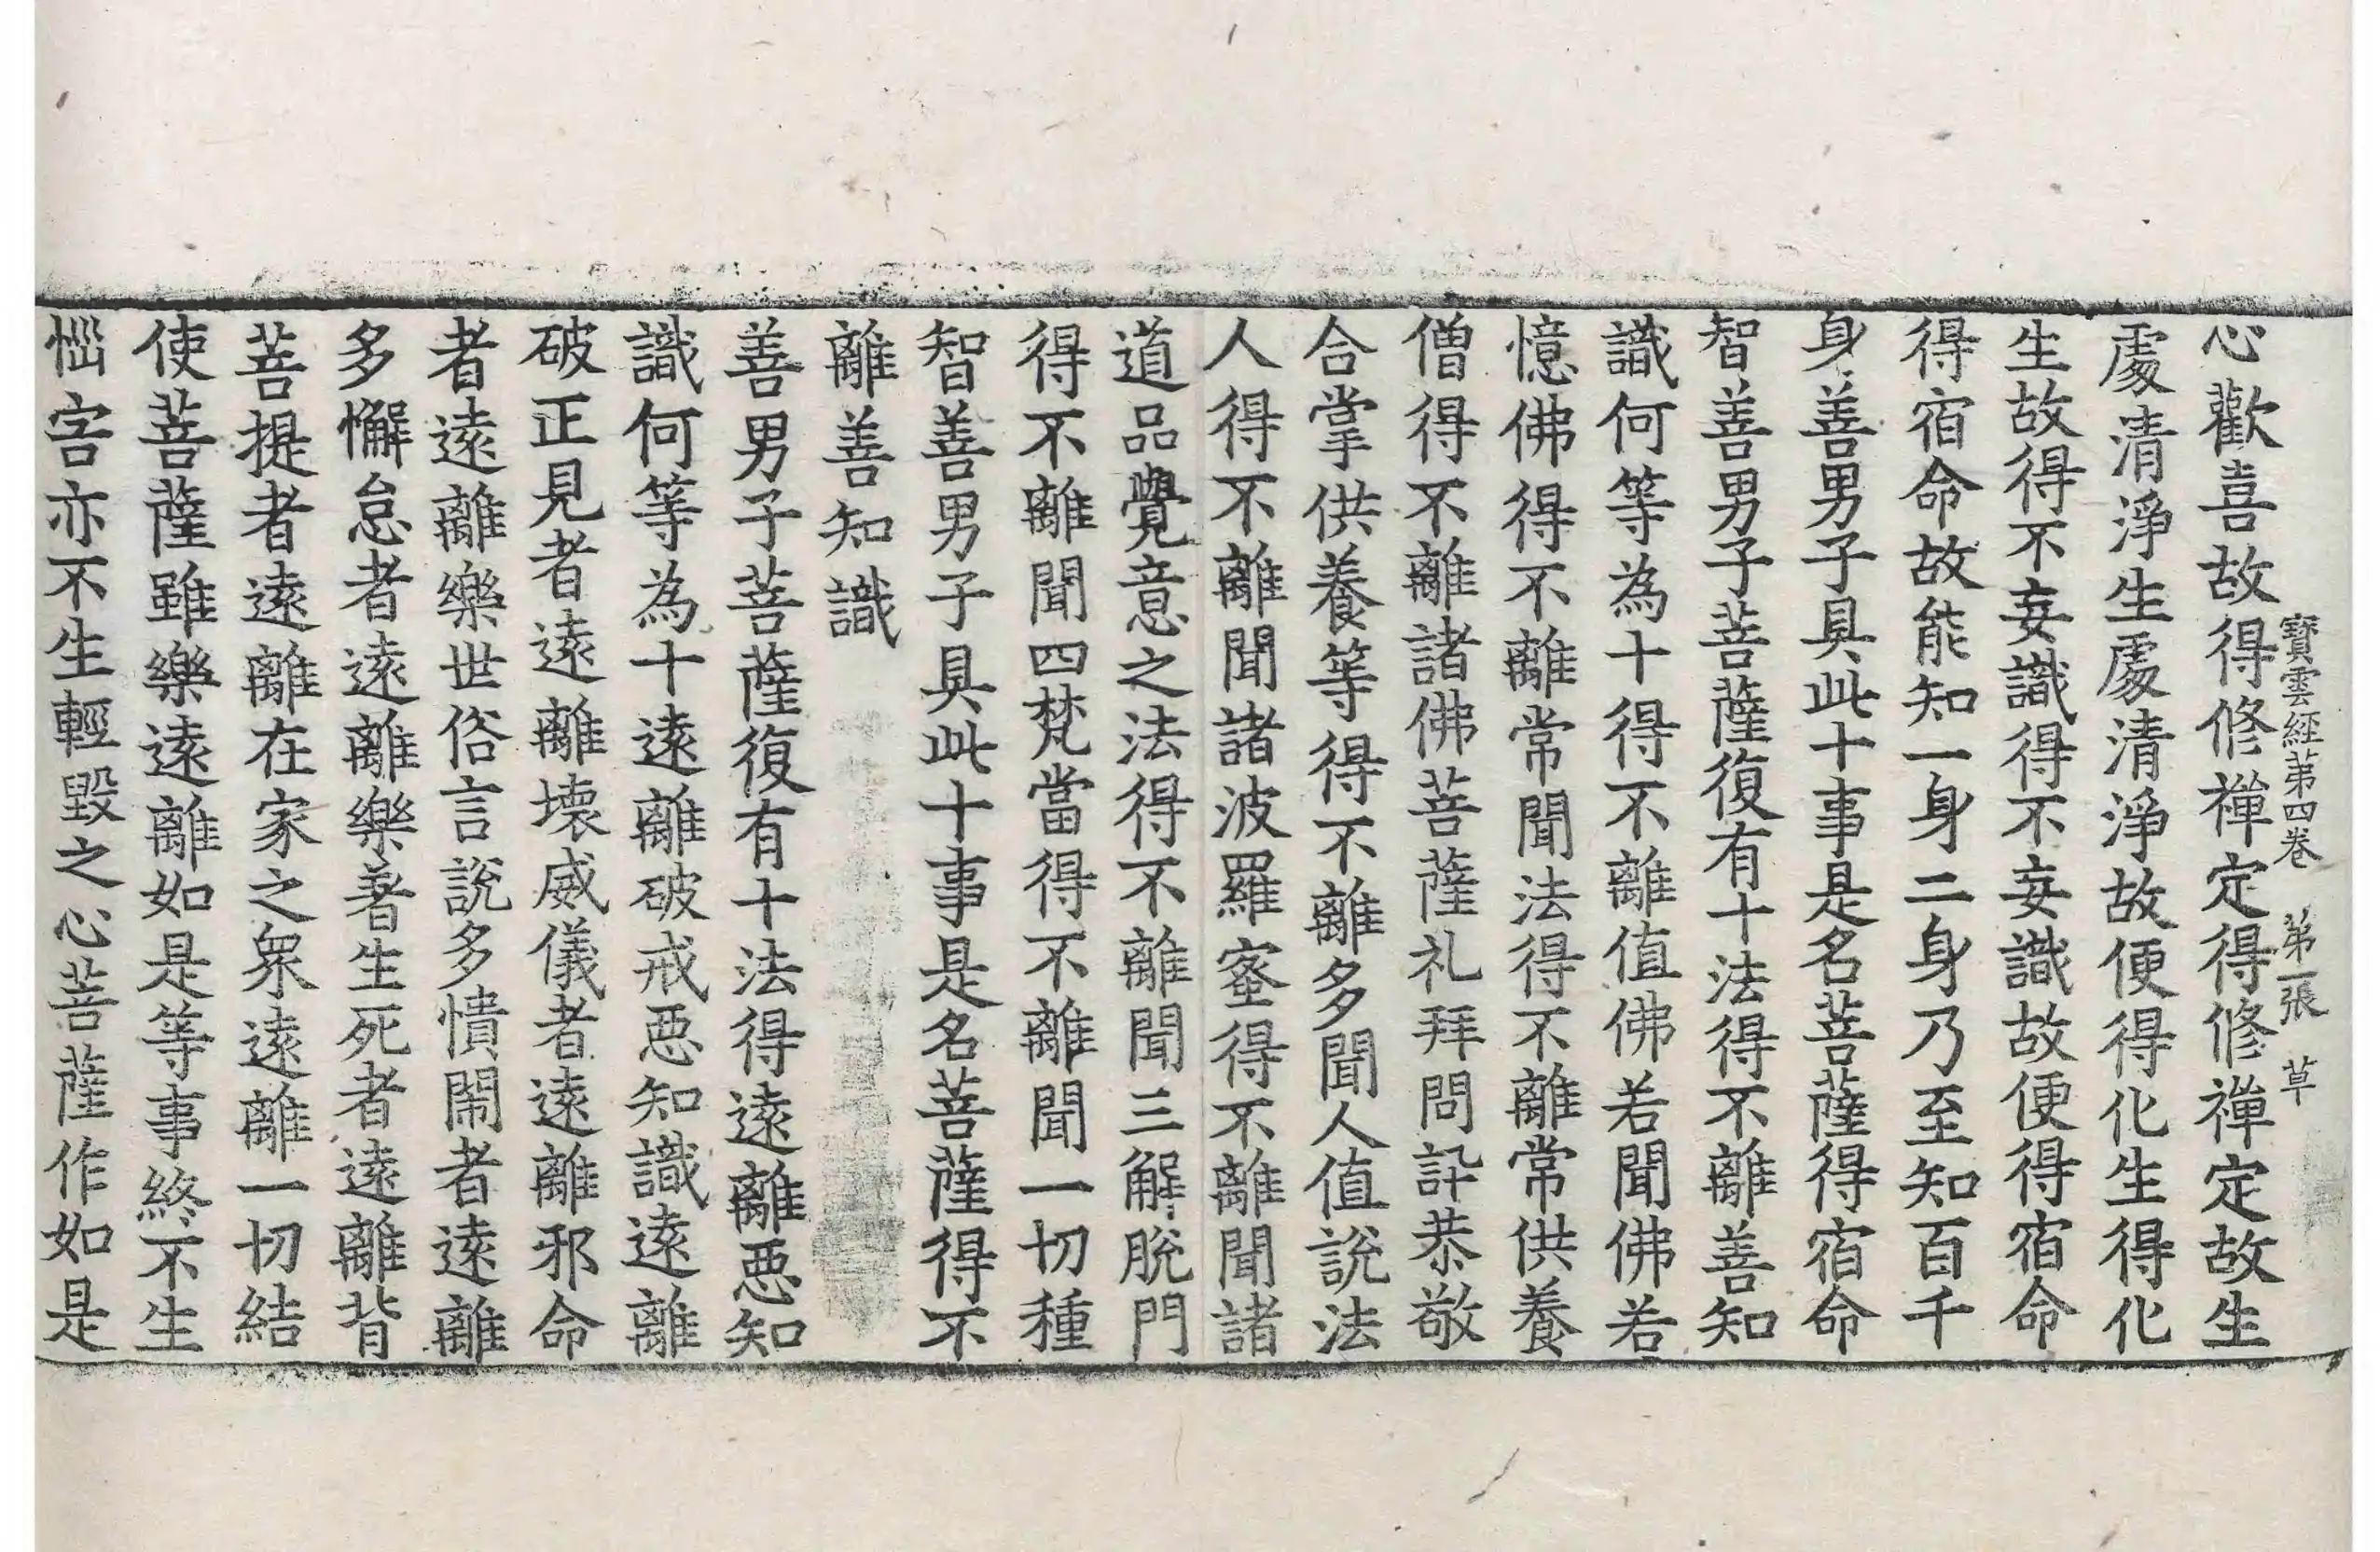 寶雲經苐四卷 苐一張 草
心歡喜故得修禪定得修禪定故生
處清淨生處清淨故便得化生得化
生故得不妄識得不妄識故便得宿命
得宿命故能知一身二身乃至知百千
身善男子具此十事是名菩薩得宿命
智善男子菩薩復有十法得不離善知
識何等為十得不離值佛若聞佛若
憶佛得不離常聞法得不離常供養
僧得不離諸佛菩薩礼拜問訊恭敬
合掌供養等得不離多聞人值說法
人得不離聞諸波羅蜜得不離聞諸
道品覺意之法得不離聞三解脫門
得不離聞四梵當得不離聞一切種
智善男子具此十事是名菩薩得不
離善知識
善男子菩薩復有十法得遠離惡知
識何等為十遠離破戒惡知識遠離
破正見者遠離壞威儀者遠離邪命
者遠離樂世俗言說多憒閙者遠離
多懈怠者遠離樂著生死者遠離背
菩提者遠離在家之衆遠離一切結
使菩薩雖樂遠離如是等事終不生
惱害亦不生輕毀之心菩薩作如是